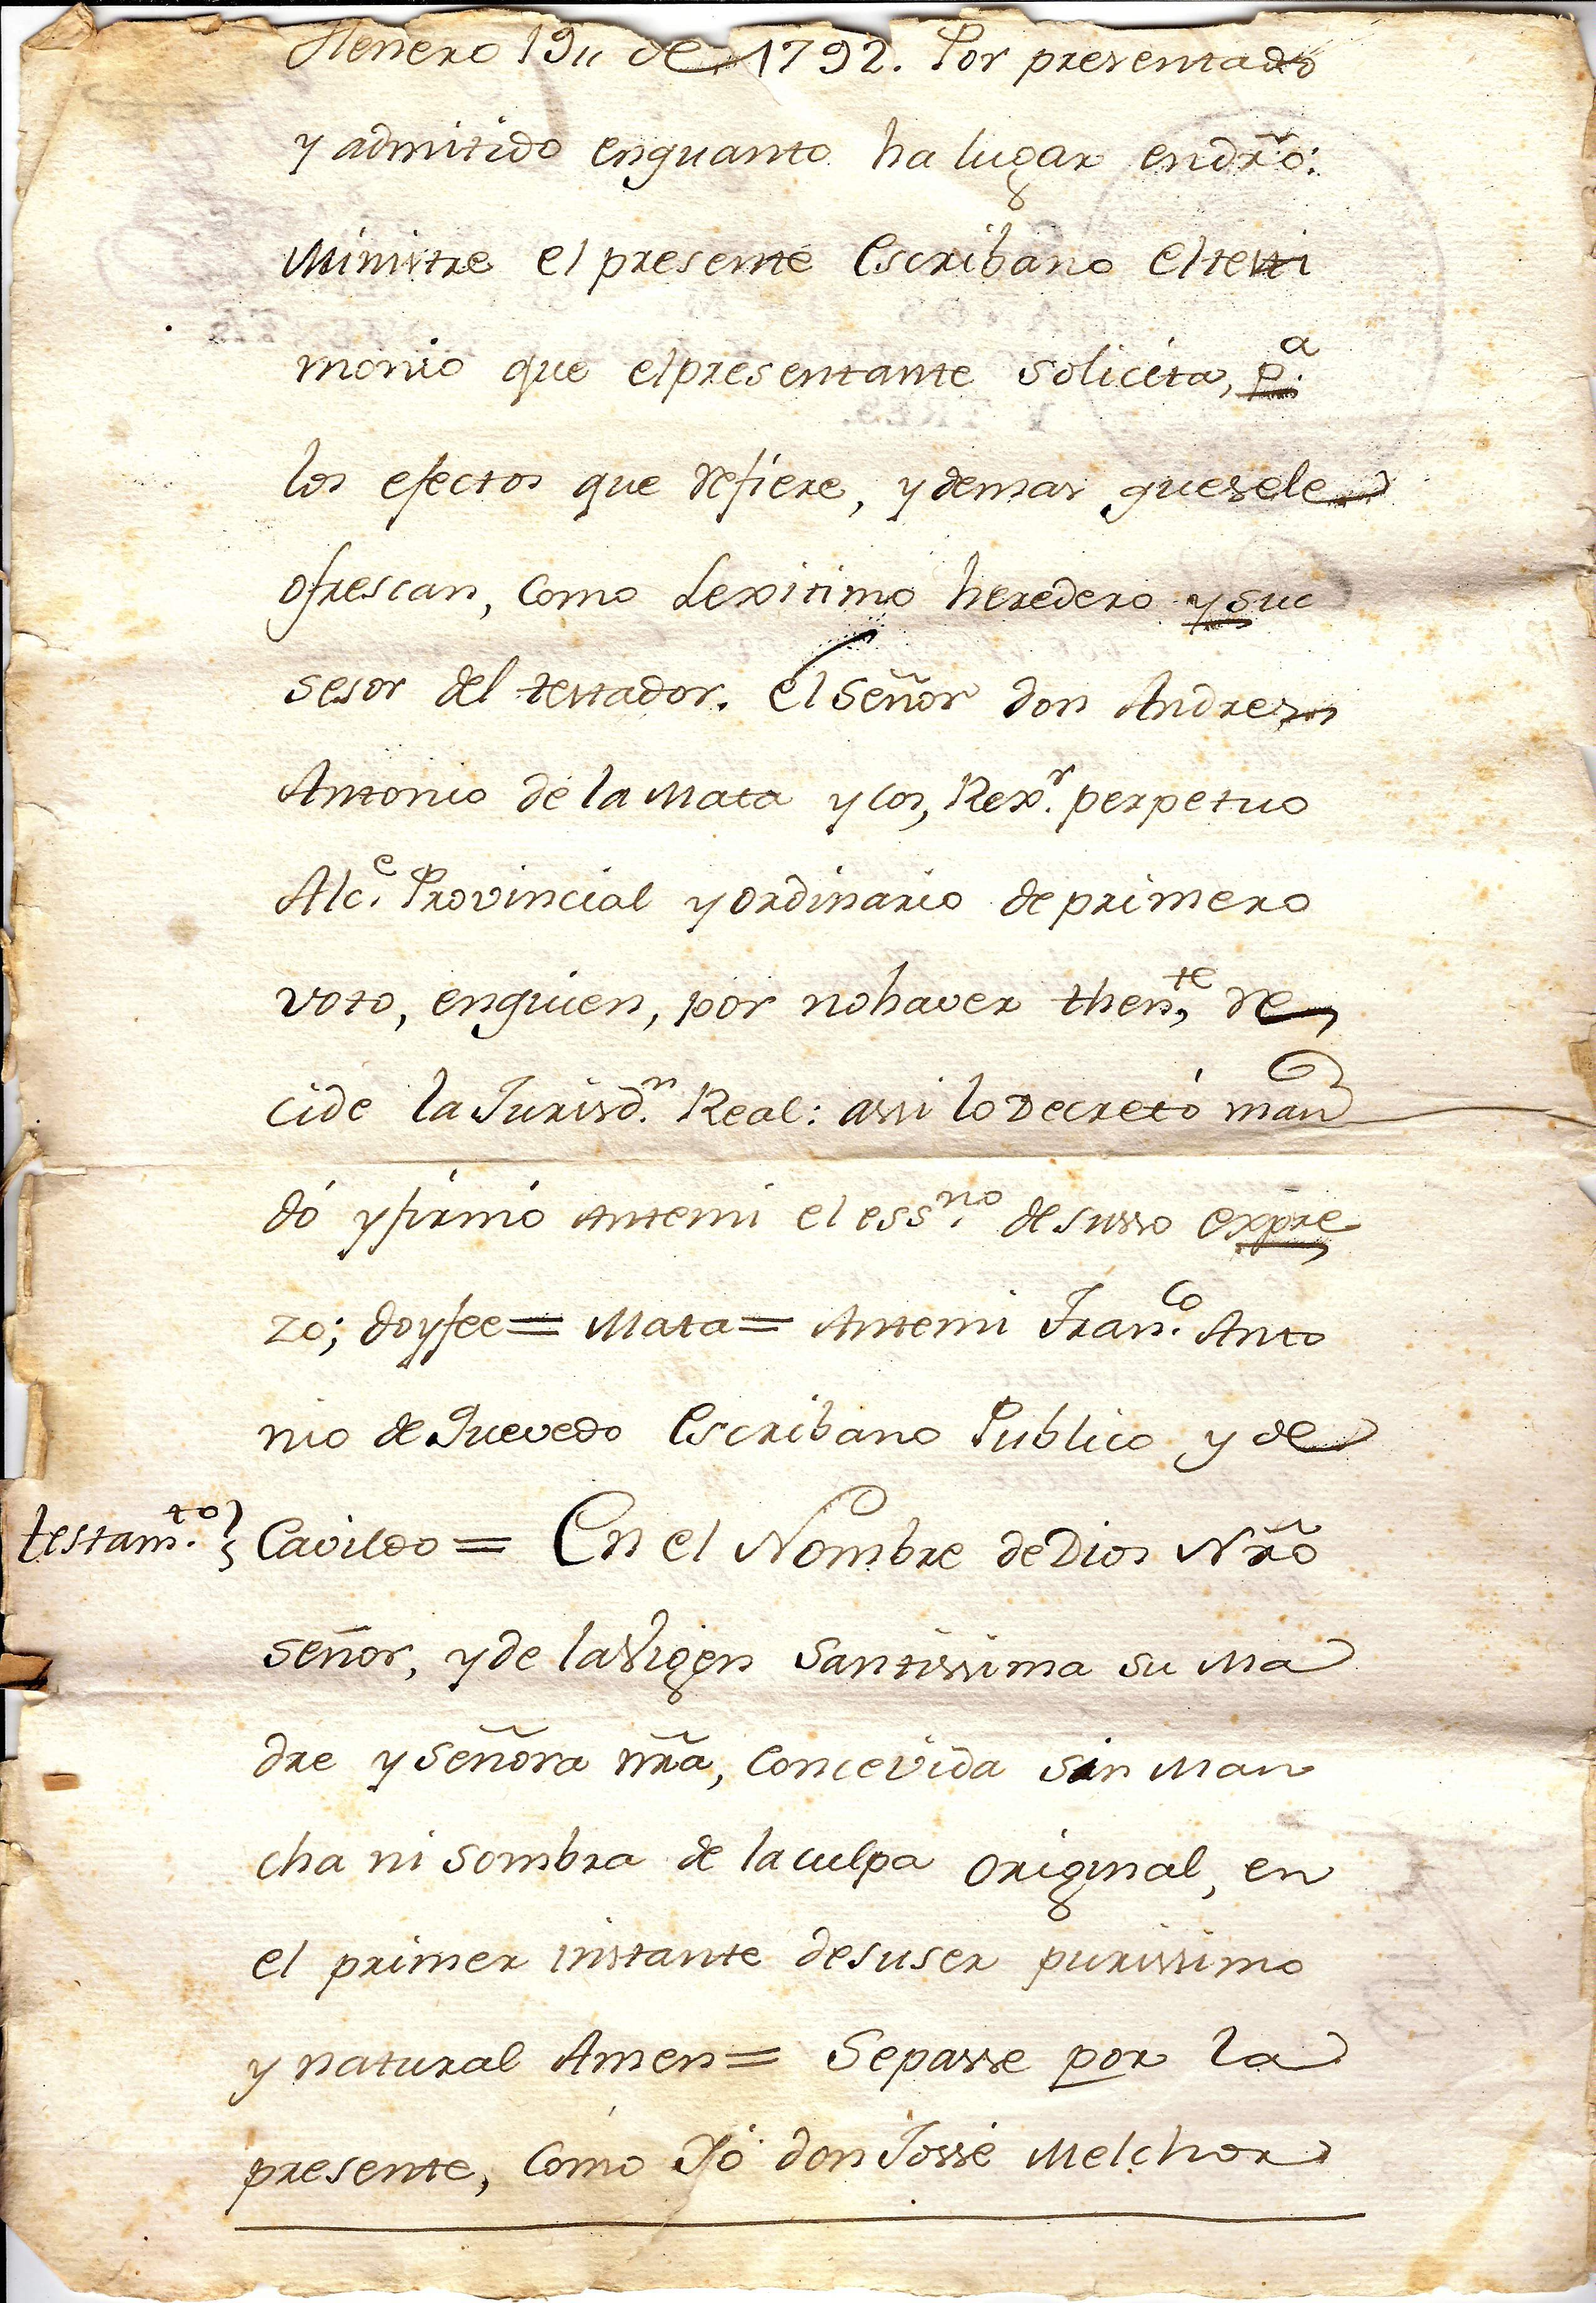 Henero 19,, de 1792. Por presentado
y admitido enquanto ha lugar endr̃o:
Ministre el presente Escribano eltesti
monio que elpresentante solicita, p.ª
los efectos que refiere, y demas quesele
ofrescan, como Lexitimo heredero y suc
sesor del testador. El Señor don Andres
Antonio de la Mata y Cos, Rex.r perpetuo
Alc.e Provincial y ordinario de primero
voto, enquien, por nohaver then.te re
cide la Jurisd.n Real: assi lo Decretó man
dó y firmó Antemi el ess.no de susso expre
zo; doyfee = Mata = Antemi Fran.co Anto
nio de Quevedo Escribano Publico y de
testam.to Cavildo = En el Nombre de Dios Nr̃o
señor, y de la Vigen Santissima su Ma
dre y Señora nr̃a, Concevida sin Man
cha ni sombra de la culpa original, en
el primer instante desuser purissimo
y natural Amen = Sepasse por la
presente, como Yó don Jossé Melchor